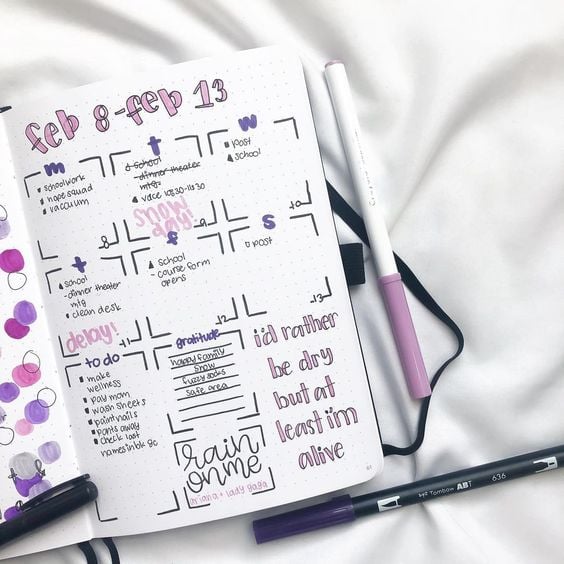 feb 8 - feb 13
m
schoolwork
hope squad
vaccum
8
t
school
-dinner theater
mtg
vace 10:30-11:30
snow
day!
9
w
post
school
10
t
school
-dinner theater
mtg
clean desk
delay!
11
f
school
-course form
opens
12
s
post
13
to do
make
wellness
pay mom
wash sheets
paint nails
pants away
check last
names in bk gc
gratitude
happy family
snow
fuzzy socks
safe area
rain
on me
ariana + lady gaga
i'd rather
be dry
but at
least i'm
alive
Tombow ABT
636